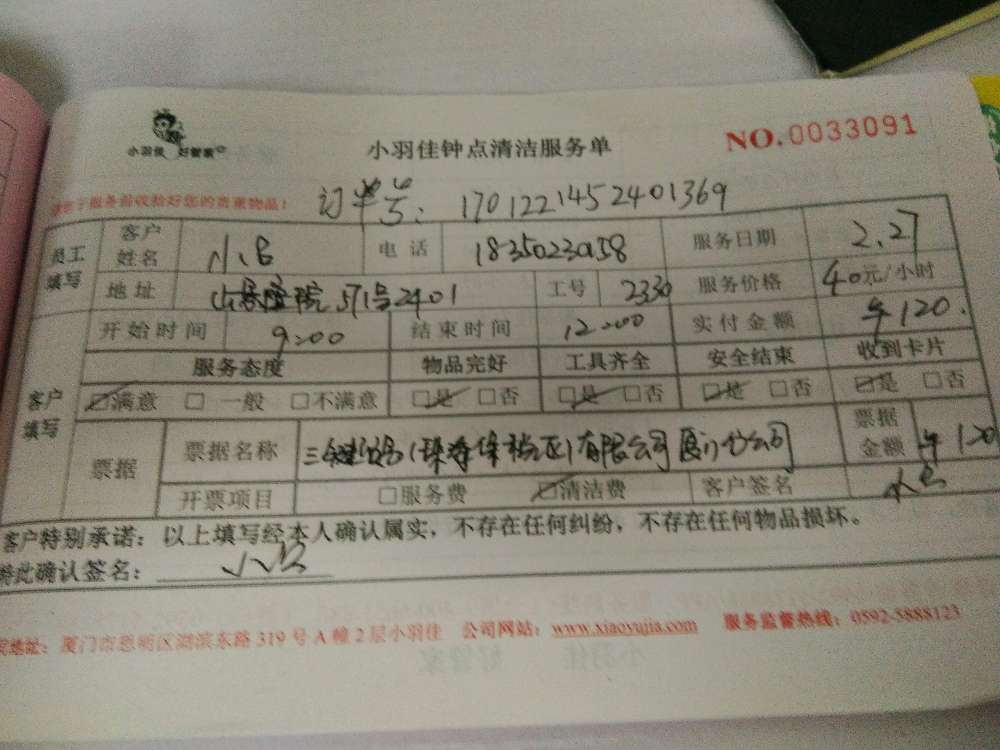 小羽佳 好管家
小羽佳钟点清洁服务单
NO.0033091
服务前收拾好您的贵重物品!
订单号: 1701221452401369
员工填写 客户姓名 电话 服务日期 2.27
地址 571号2401 工号 2330 服务价格 40元/小时
开始时间 9:00 结束时间 12:00 实付金额 ¥120.
服务态度 物品完好 工具齐全 安全结束 收到卡片
客户填写 ☑满意 □一般 □不满意 ☑是 □否 ☑是 □否 ☑是 □否 ☑是 □否
票据 票据名称 有限公司 分公司 票据金额 ¥120
开票项目 □服务费 ☑清洁费 客户签名
客户特别承诺:以上填写经本人确认属实,不存在任何纠纷,不存在任何物品损坏。
特此确认签名:
地址:厦门市思明区湖滨东路319号A幢2层小羽佳 公司网站:www.xiaoyujia.com 服务监督热线:0592-5888123